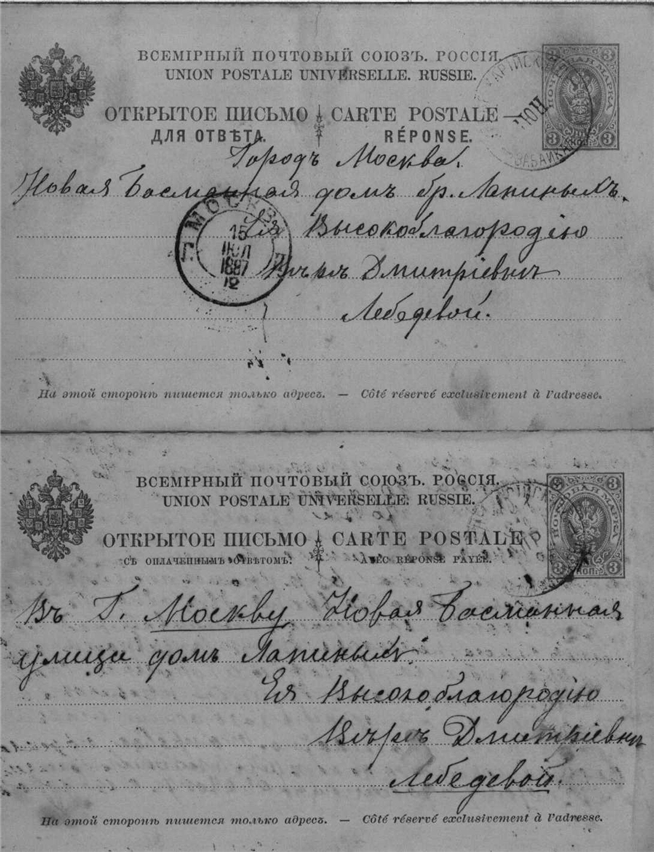 ВСЕМІРНЫЙ ПОЧТОВЫЙ СОЮЗЪ. РОССІЯ.
UNION POSTALE UNIVERSELLE. RUSSIE.
3 3
ПОЧТОВАЯ МАРКА
3 3
ОТКРЫТОЕ ПИСЬМО CARTE POSTALE
ДЛЯ ОТВѢТА. RÉPONSE.
Городъ Москва.
Новая Басманная домъ бр. Лапиныхъ.
Ея Высокоблагородію
Вѣрѣ Дмитріевнѣ
Лебедевой.
МОСКВА
15
ІЮЛ
1887
12
На этой сторонѣ пишется только адресъ. — Côté réservé exclusivement à l'adresse.
ВСЕМІРНЫЙ ПОЧТОВЫЙ СОЮЗЪ. РОССІЯ.
UNION POSTALE UNIVERSELLE. RUSSIE.
3 3
ПОЧТОВАЯ МАРКА
3 КОП. 3
ОТКРЫТОЕ ПИСЬМО CARTE POSTALE
СЪ ОПЛАЧЕННЫМЪ ОТВѢТОМЪ. AVEC RÉPONSE PAYÉE.
Въ Г. Москву Новая Басманная
улица домъ Лапиныхъ.
Ея Высокоблагородію
Вѣрѣ Дмитріевнѣ
Лебедевой.
На этой сторонѣ пишется только адресъ. — Côté réservé exclusivement à l'adresse.